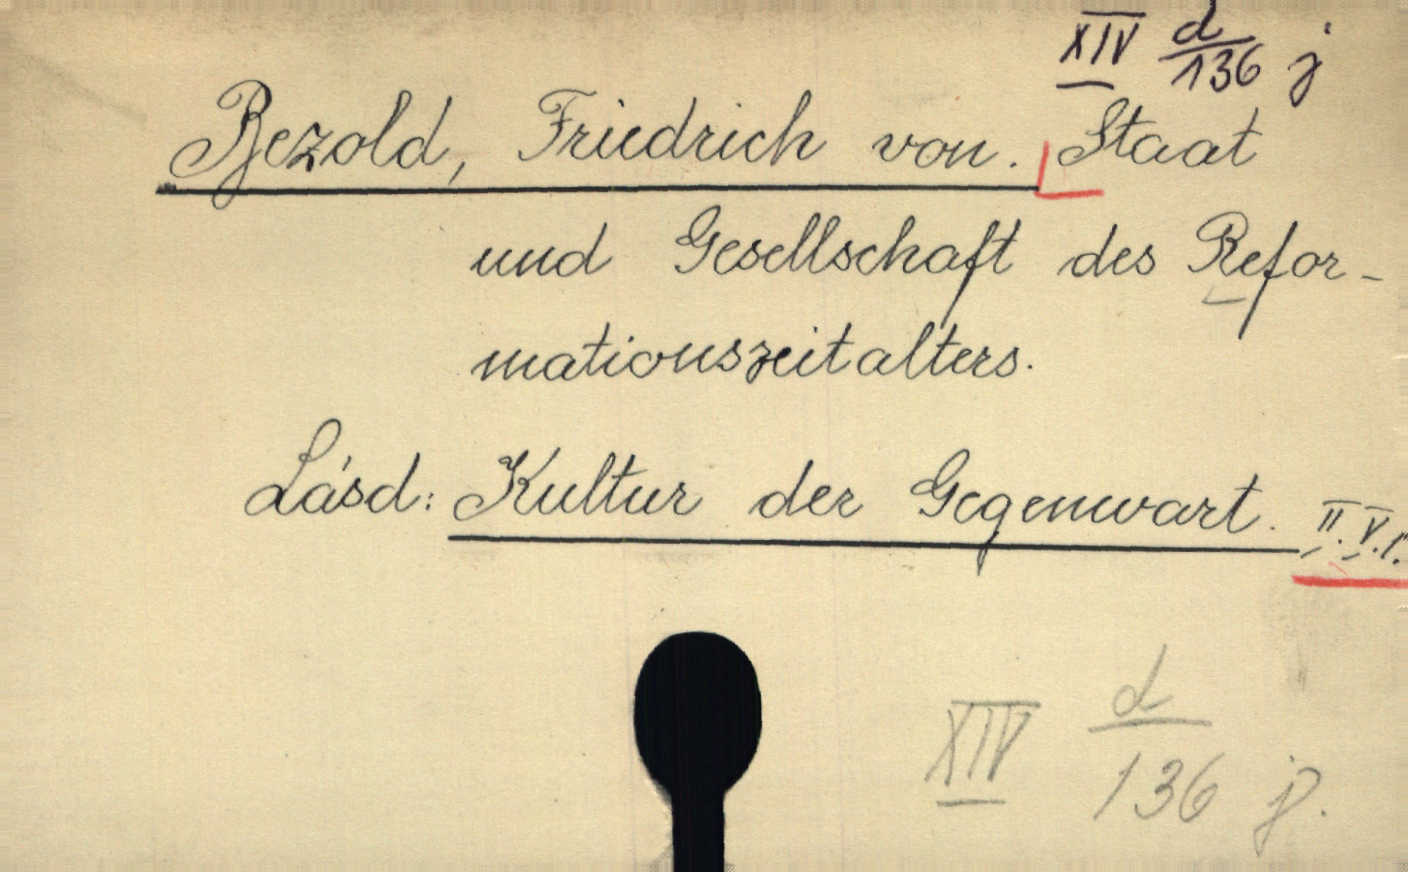 XIV d/136 j
Bezold, Friedrich von. Staat
und Gesellschaft des Refor-
mationszeitalters.
Lásd: Kultur der Gegenwart. II. V.1.
XIV d/136 j.